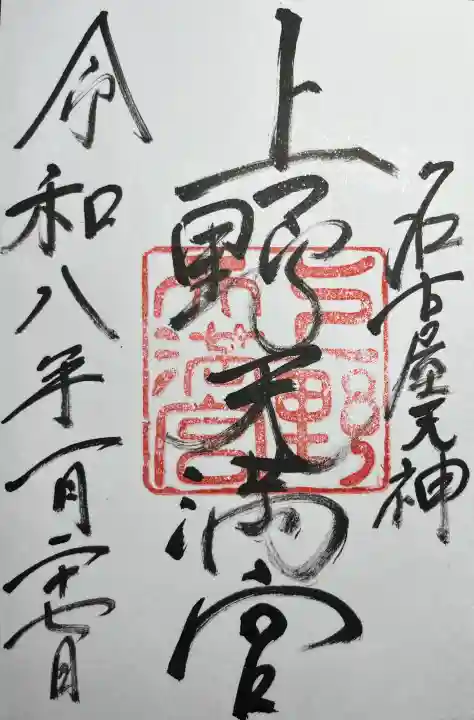 名古屋天神
上野天満宮
上野天満宮
令和八年一月二十七日